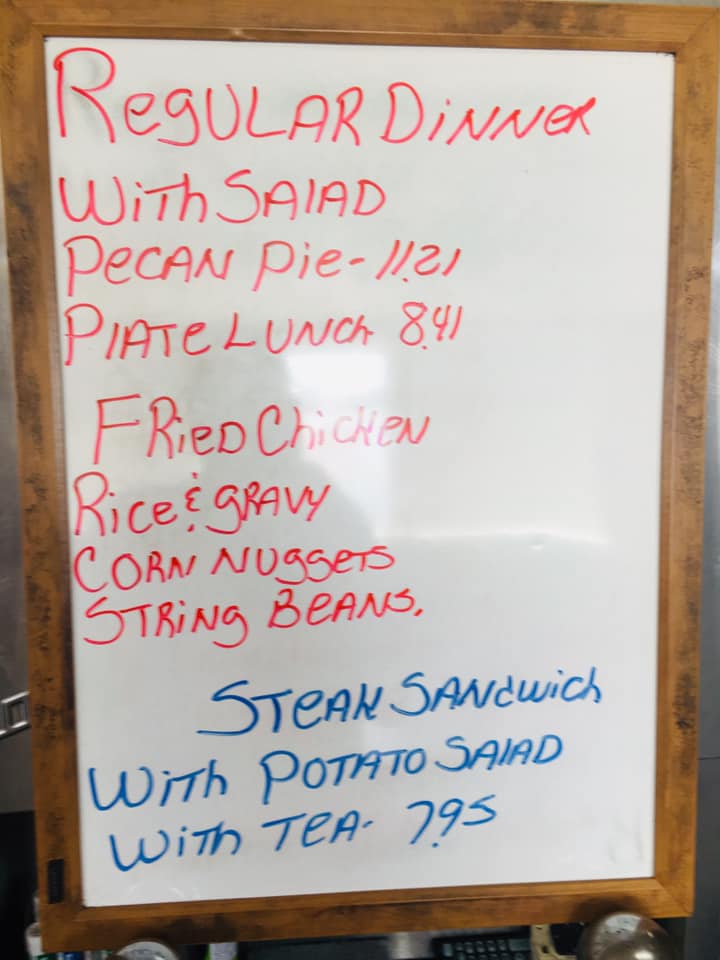 RegULAR DiNNeR
With SAlAD
PeCAN Pie- 11.21
PlATe LUNCh 8.41
FRieD ChiCKeN
Rice & gRAVY
CORN NUggeTS
STRiNg BeANS.
STeAK SANdwich
With POTATO SAlAD
With TeA- 7.95